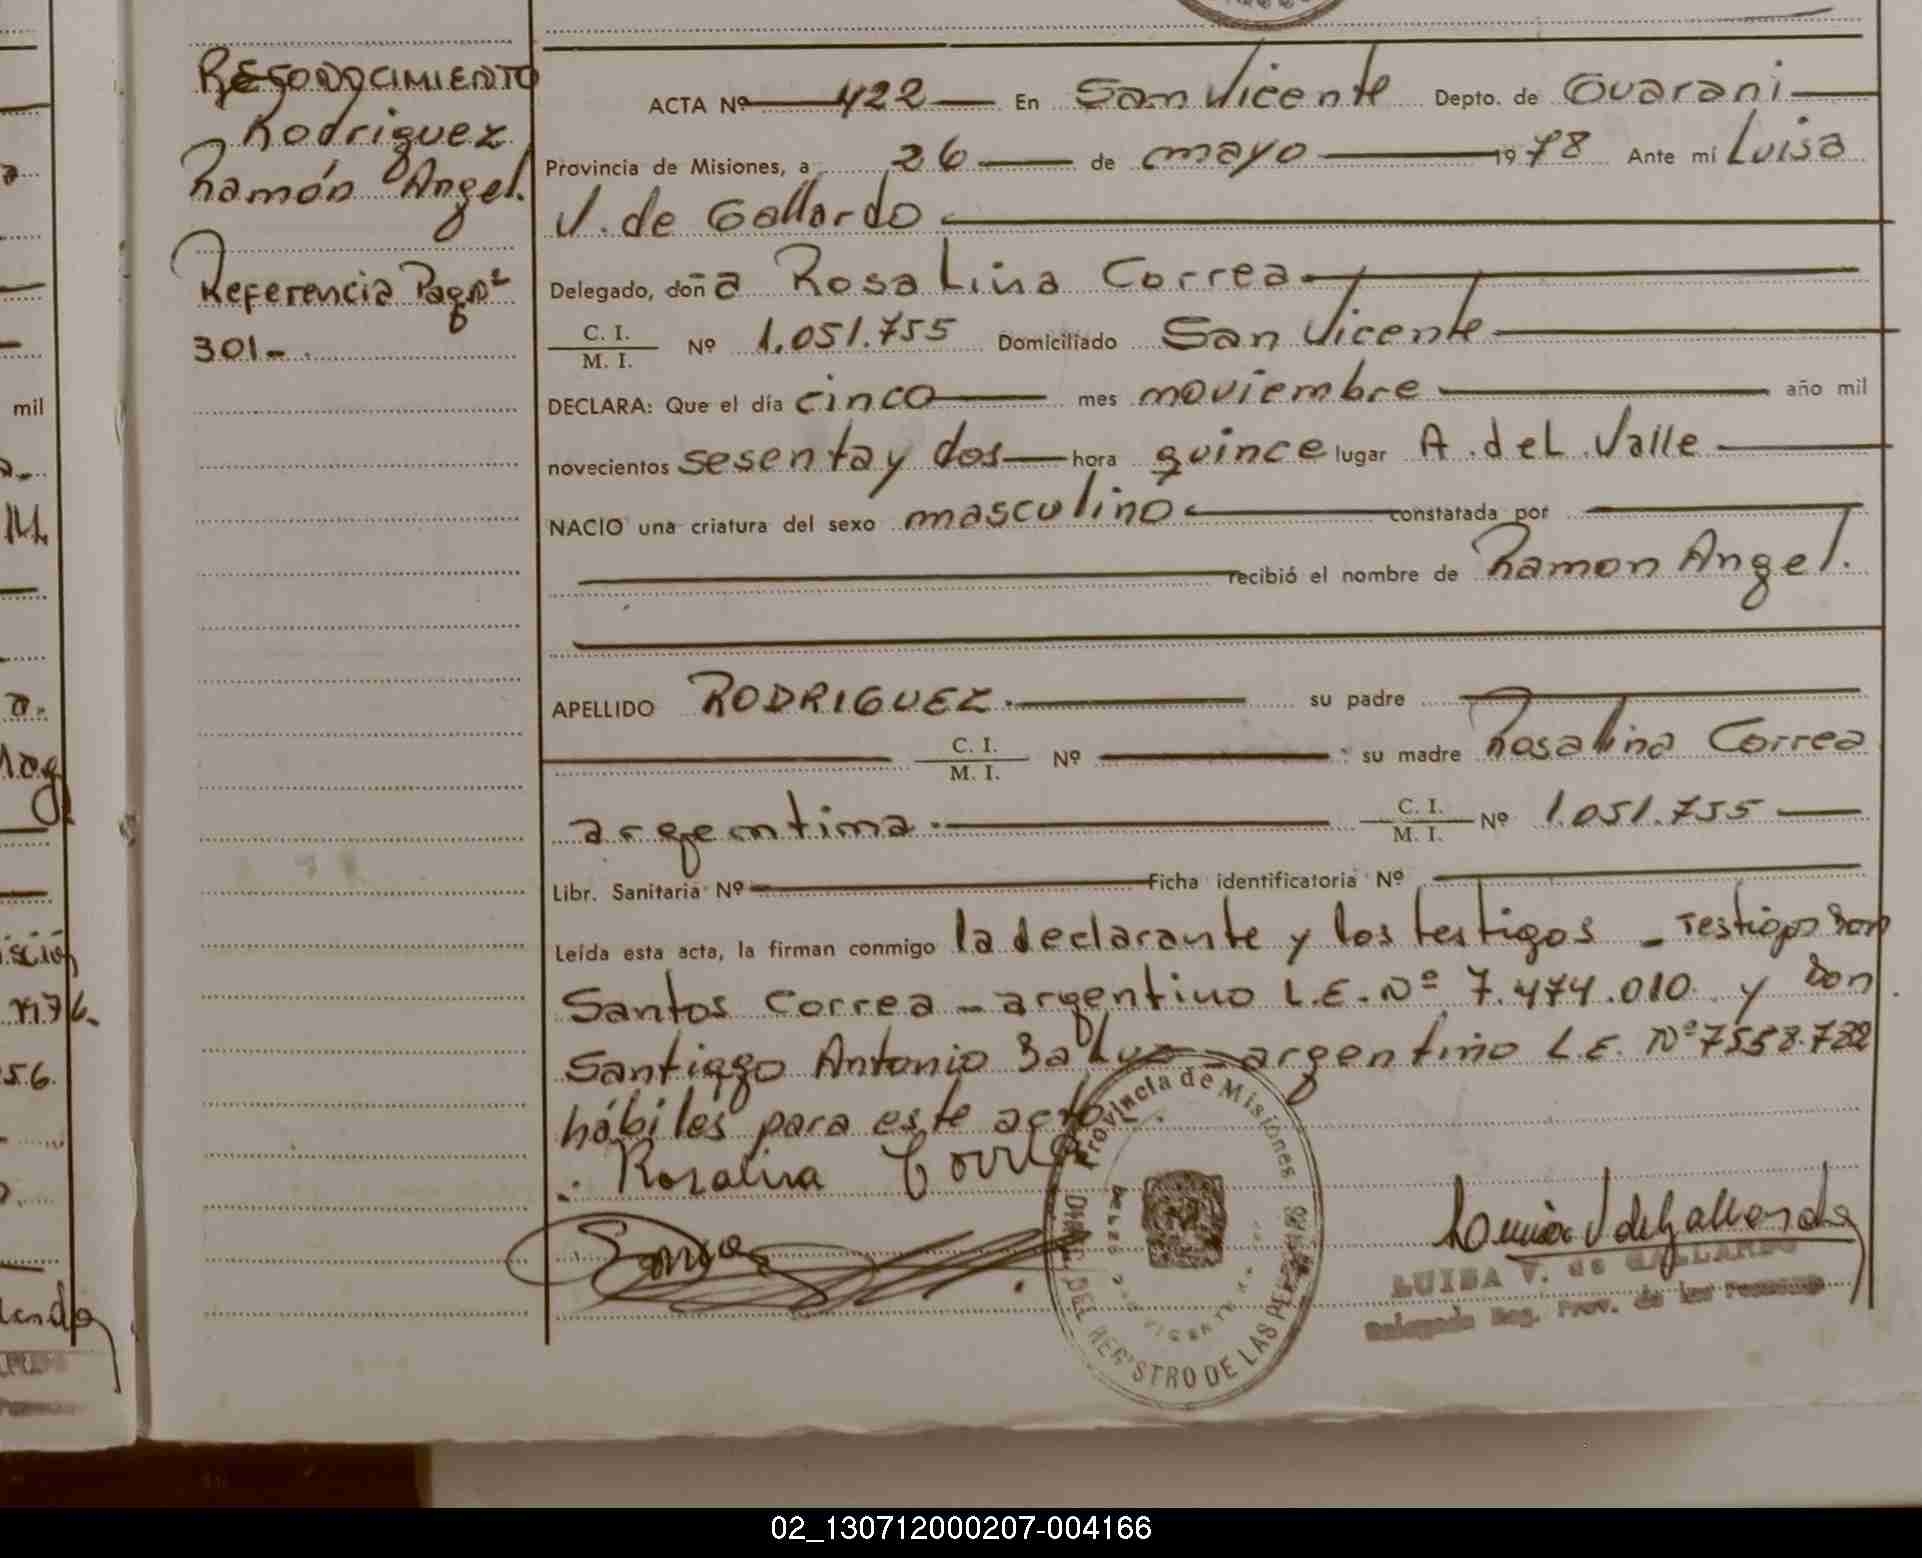 RECONOCIMIENTO
Rodriguez
Ramón Angel.
Referencia Pag nº
301-.
ACTA Nº 422 En San Vicente Depto. de Guarani
Provincia de Misiones, a 26 de mayo 1978 Ante mí Luisa
V. de Gallardo
Delegado, doña Rosalina Correa
C. I.
M. I. Nº 1.051.755 Domiciliado San Vicente
DECLARA: Que el día cinco mes noviembre año mil
novecientos sesenta y dos hora quince lugar A. del Valle
NACIO una criatura del sexo masculino constatada por
recibió el nombre de Ramon Angel.
APELLIDO RODRIGUEZ. su padre
C. I.
M. I. Nº su madre Rosalina Correa
argentina. C. I.
M. I. Nº 1.051.755
Libr. Sanitaria Nº Ficha identificatoria Nº
Leída esta acta, la firman conmigo la declarante y los testigos - Testigos Don
Santos Correa - argentino L.E. Nº 7.474.010. y Don
Santiago Antonio argentino L.E. Nº
hábiles para este acto.
Rosalina Correa
Provincia de Misiones
DIREC. DEL REGISTRO DE LAS PERSONAS
Luisa V de Gallardo
LUISA V. de GALLARDO
Delegada Reg. Prov. de las Personas
mil
02_130712000207-004166